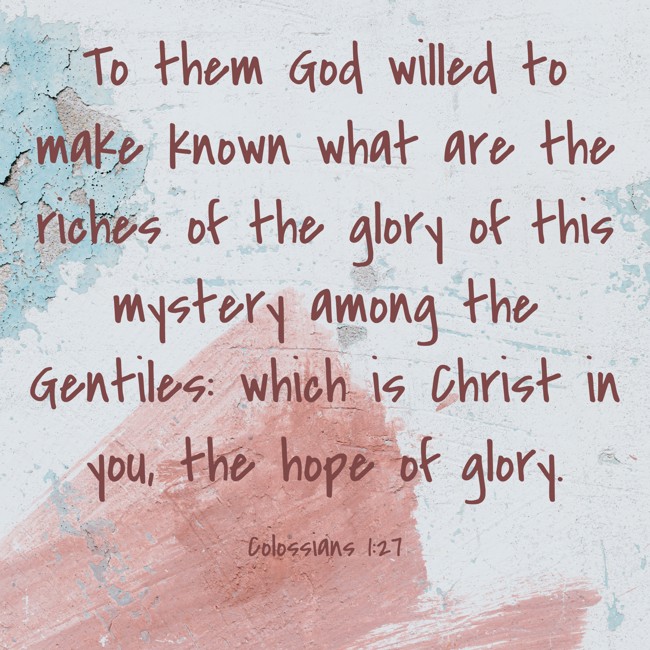 To them God willed to
make known what are the
riches of the glory of this
mystery among the
Gentiles: which is Christ in
you, the hope of glory.
Colossians 1:27